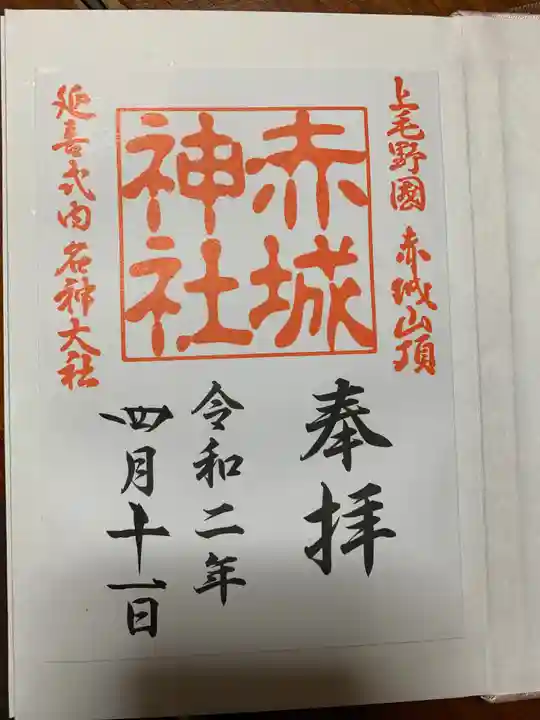 上毛野國 赤城山頂
赤城
神社
延喜式内名神大社
奉拝
令和二年
四月十一日